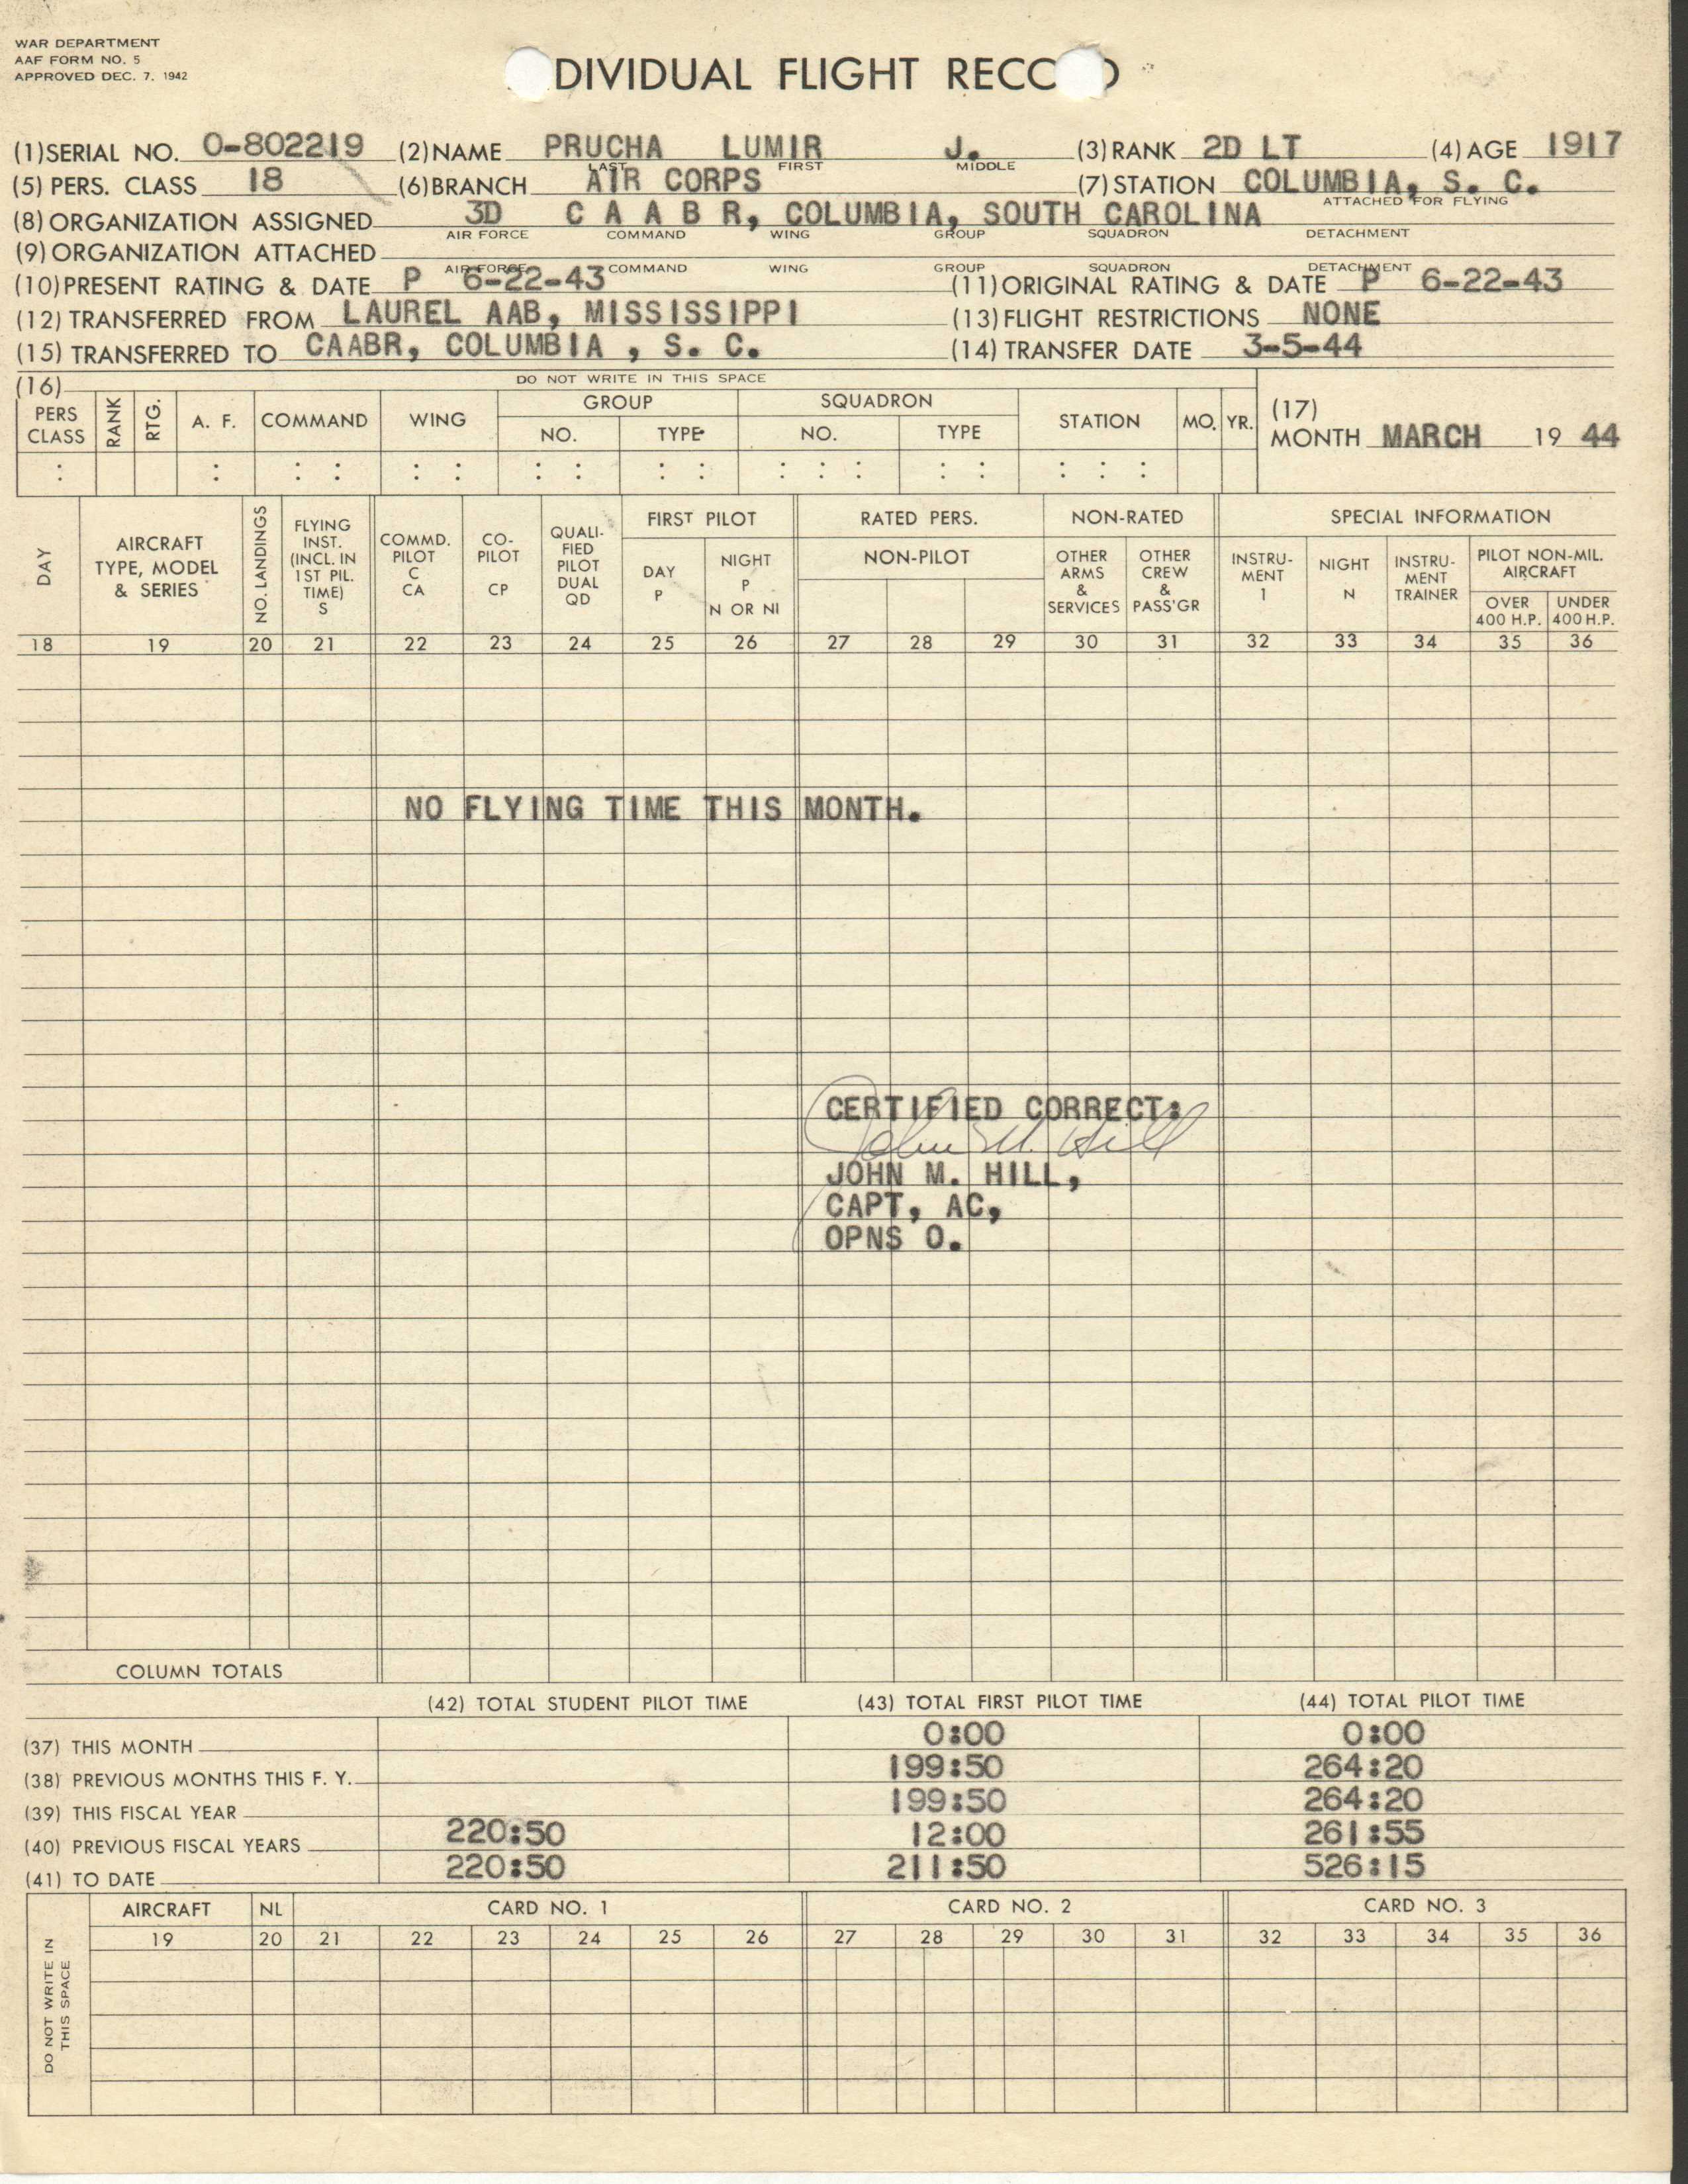 WAR DEPARTMENT
AAF FORM NO. 5
APPROVED DEC. 7, 1942
DIVIDUAL FLIGHT REC
(1) SERIAL NO. O-802219 (2) NAME PRUCHA LUMIR J. (3) RANK 2D LT (4) AGE 1917
LAST FIRST MIDDLE
(5) PERS. CLASS 18 (6) BRANCH AIR CORPS (7) STATION COLUMBIA, S. C.
ATTACHED FOR FLYING
(8) ORGANIZATION ASSIGNED 3D C A A B R, COLUMBIA, SOUTH CAROLINA
AIR FORCE COMMAND WING GROUP SQUADRON DETACHMENT
(9) ORGANIZATION ATTACHED
AIR FORCE COMMAND WING GROUP SQUADRON DETACHMENT
(10) PRESENT RATING & DATE P 6-22-43 (11) ORIGINAL RATING & DATE P 6-22-43
(12) TRANSFERRED FROM LAUREL AAB, MISSISSIPPI (13) FLIGHT RESTRICTIONS NONE
(15) TRANSFERRED TO CAABR, COLUMBIA , S. C. (14) TRANSFER DATE 3-5-44
(16) DO NOT WRITE IN THIS SPACE
PERS CLASS RANK RTG. A. F. COMMAND WING GROUP NO. TYPE SQUADRON NO. TYPE STATION MO. YR.
(17)
MONTH MARCH 19 44
DAY AIRCRAFT TYPE, MODEL & SERIES NO. LANDINGS FLYING INST. (INCL. IN 1ST PIL. TIME) S COMMD. PILOT C CA CO-PILOT CP QUALI-FIED PILOT DUAL QD FIRST PILOT DAY P NIGHT P N OR NI RATED PERS. NON-PILOT NON-RATED OTHER ARMS & SERVICES OTHER CREW & PASS'GR SPECIAL INFORMATION INSTRU-MENT I NIGHT N INSTRU-MENT TRAINER PILOT NON-MIL. AIRCRAFT OVER 400 H.P. UNDER 400 H.P.
18 19 20 21 22 23 24 25 26 27 28 29 30 31 32 33 34 35 36
NO FLYING TIME THIS MONTH.
CERTIFIED CORRECT:
John M. Hill
JOHN M. HILL,
CAPT, AC,
OPNS O.
COLUMN TOTALS
(42) TOTAL STUDENT PILOT TIME (43) TOTAL FIRST PILOT TIME (44) TOTAL PILOT TIME
(37) THIS MONTH 0:00 0:00
(38) PREVIOUS MONTHS THIS F. Y. 199:50 264:20
(39) THIS FISCAL YEAR 199:50 264:20
(40) PREVIOUS FISCAL YEARS 220:50 12:00 261:55
(41) TO DATE 220:50 211:50 526:15
DO NOT WRITE IN THIS SPACE
AIRCRAFT NL CARD NO. 1 CARD NO. 2 CARD NO. 3
19 20 21 22 23 24 25 26 27 28 29 30 31 32 33 34 35 36